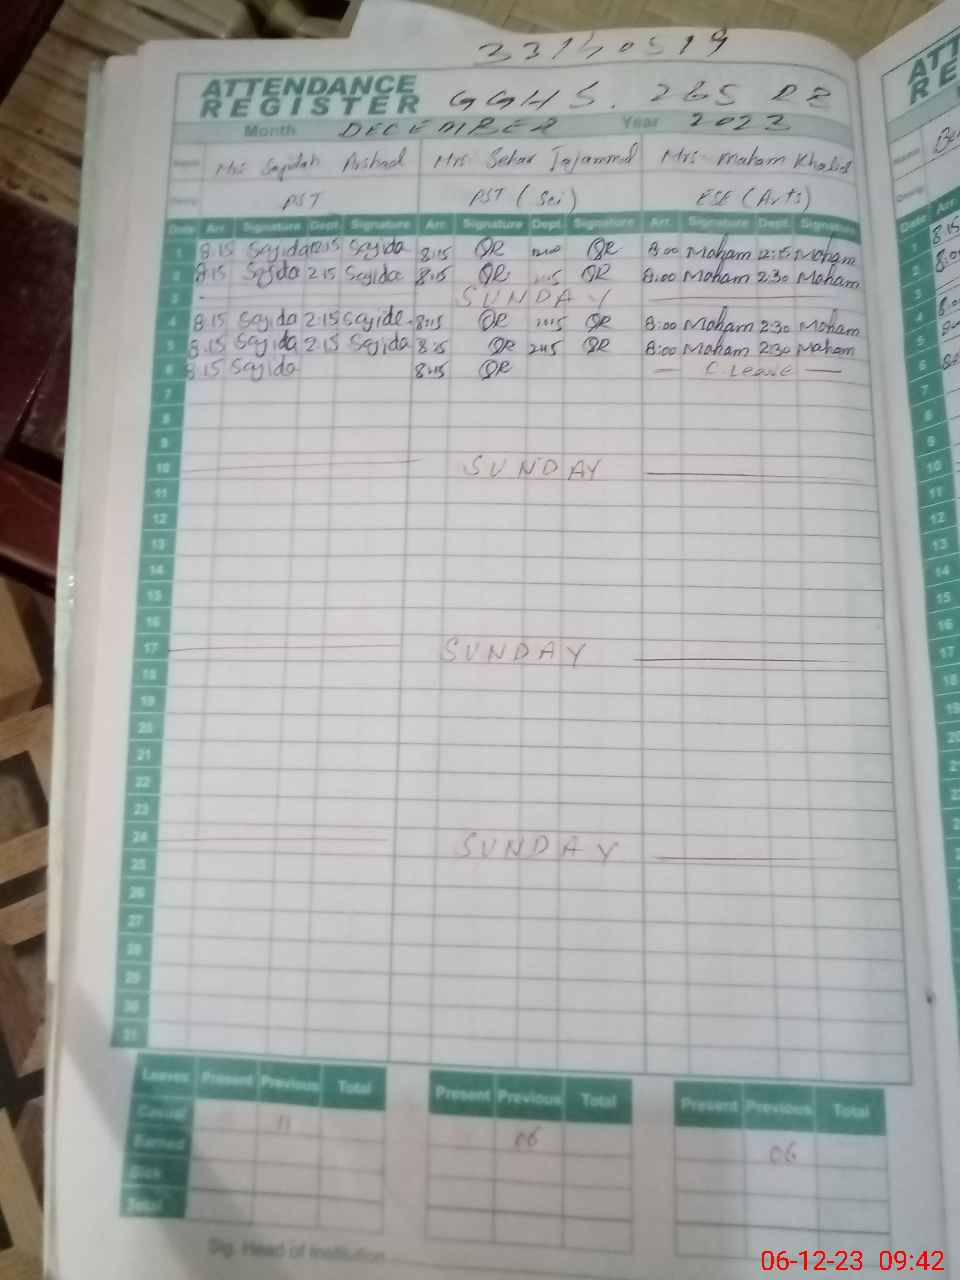 33150519
ATTENDANCE
REGISTER GGHS. 265 RB
Month DECEMBER Year 2023
Name Mrs Sajidah Arshad Mrs. Sehar Tajammal Mrs. Maham Khalid
Desig. PST PST (Sci) ESE (Arts)
Date Arr. Signature Dept. Signature Arr. Signature Dept. Signature Arr. Signature Dept. Signature
1 8.15 Sajida 12:15 Sajida 8:15 1200 8:00 Maham 12:15 Maham
2 8.15 Sajida 2:15 Sajida 8:15 8:00 Maham 2:30 Maham
3 SUNDAY
4 8.15 Sajida 2:15 Sajida 8:15 8:00 Maham 2:30 Maham
5 8.15 Sajida 2:15 Sajida 8:15 8:00 Maham 2:30 Maham
6 8.15 Sajida 8:15 C. Leave
7
8
9
10 SUNDAY
11
12
13
14
15
16
17 SUNDAY
18
19
20
21
22
23
24 SUNDAY
25
26
27
28
29
30
31
Leaves Present Previous Total Present Previous Total Present Previous Total
Casual 11 06 06
Earned
Sick
Total
Sig. Head of Institution
ATT
REG
Date Arr.
1 8:15
2
3
4
5
6
7
8
9
10
11
12
13
14
15
16
17
18
19
06-12-23 09:42